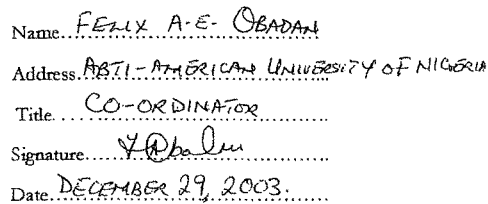 Name. FELIX A-E- OBADAN
Address. ABTI-AMERICAN UNIVERSITY OF NIGERIA
Title. CO-ORDINATOR
Signature
Date. DECEMBER 29, 2003.